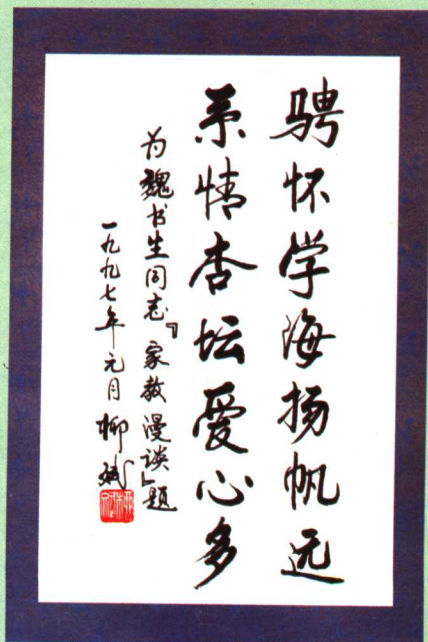 骋怀学海扬帆远
系情杏坛爱心多
为魏书生同志『家教漫谈』题
一九九七年元月 柳斌